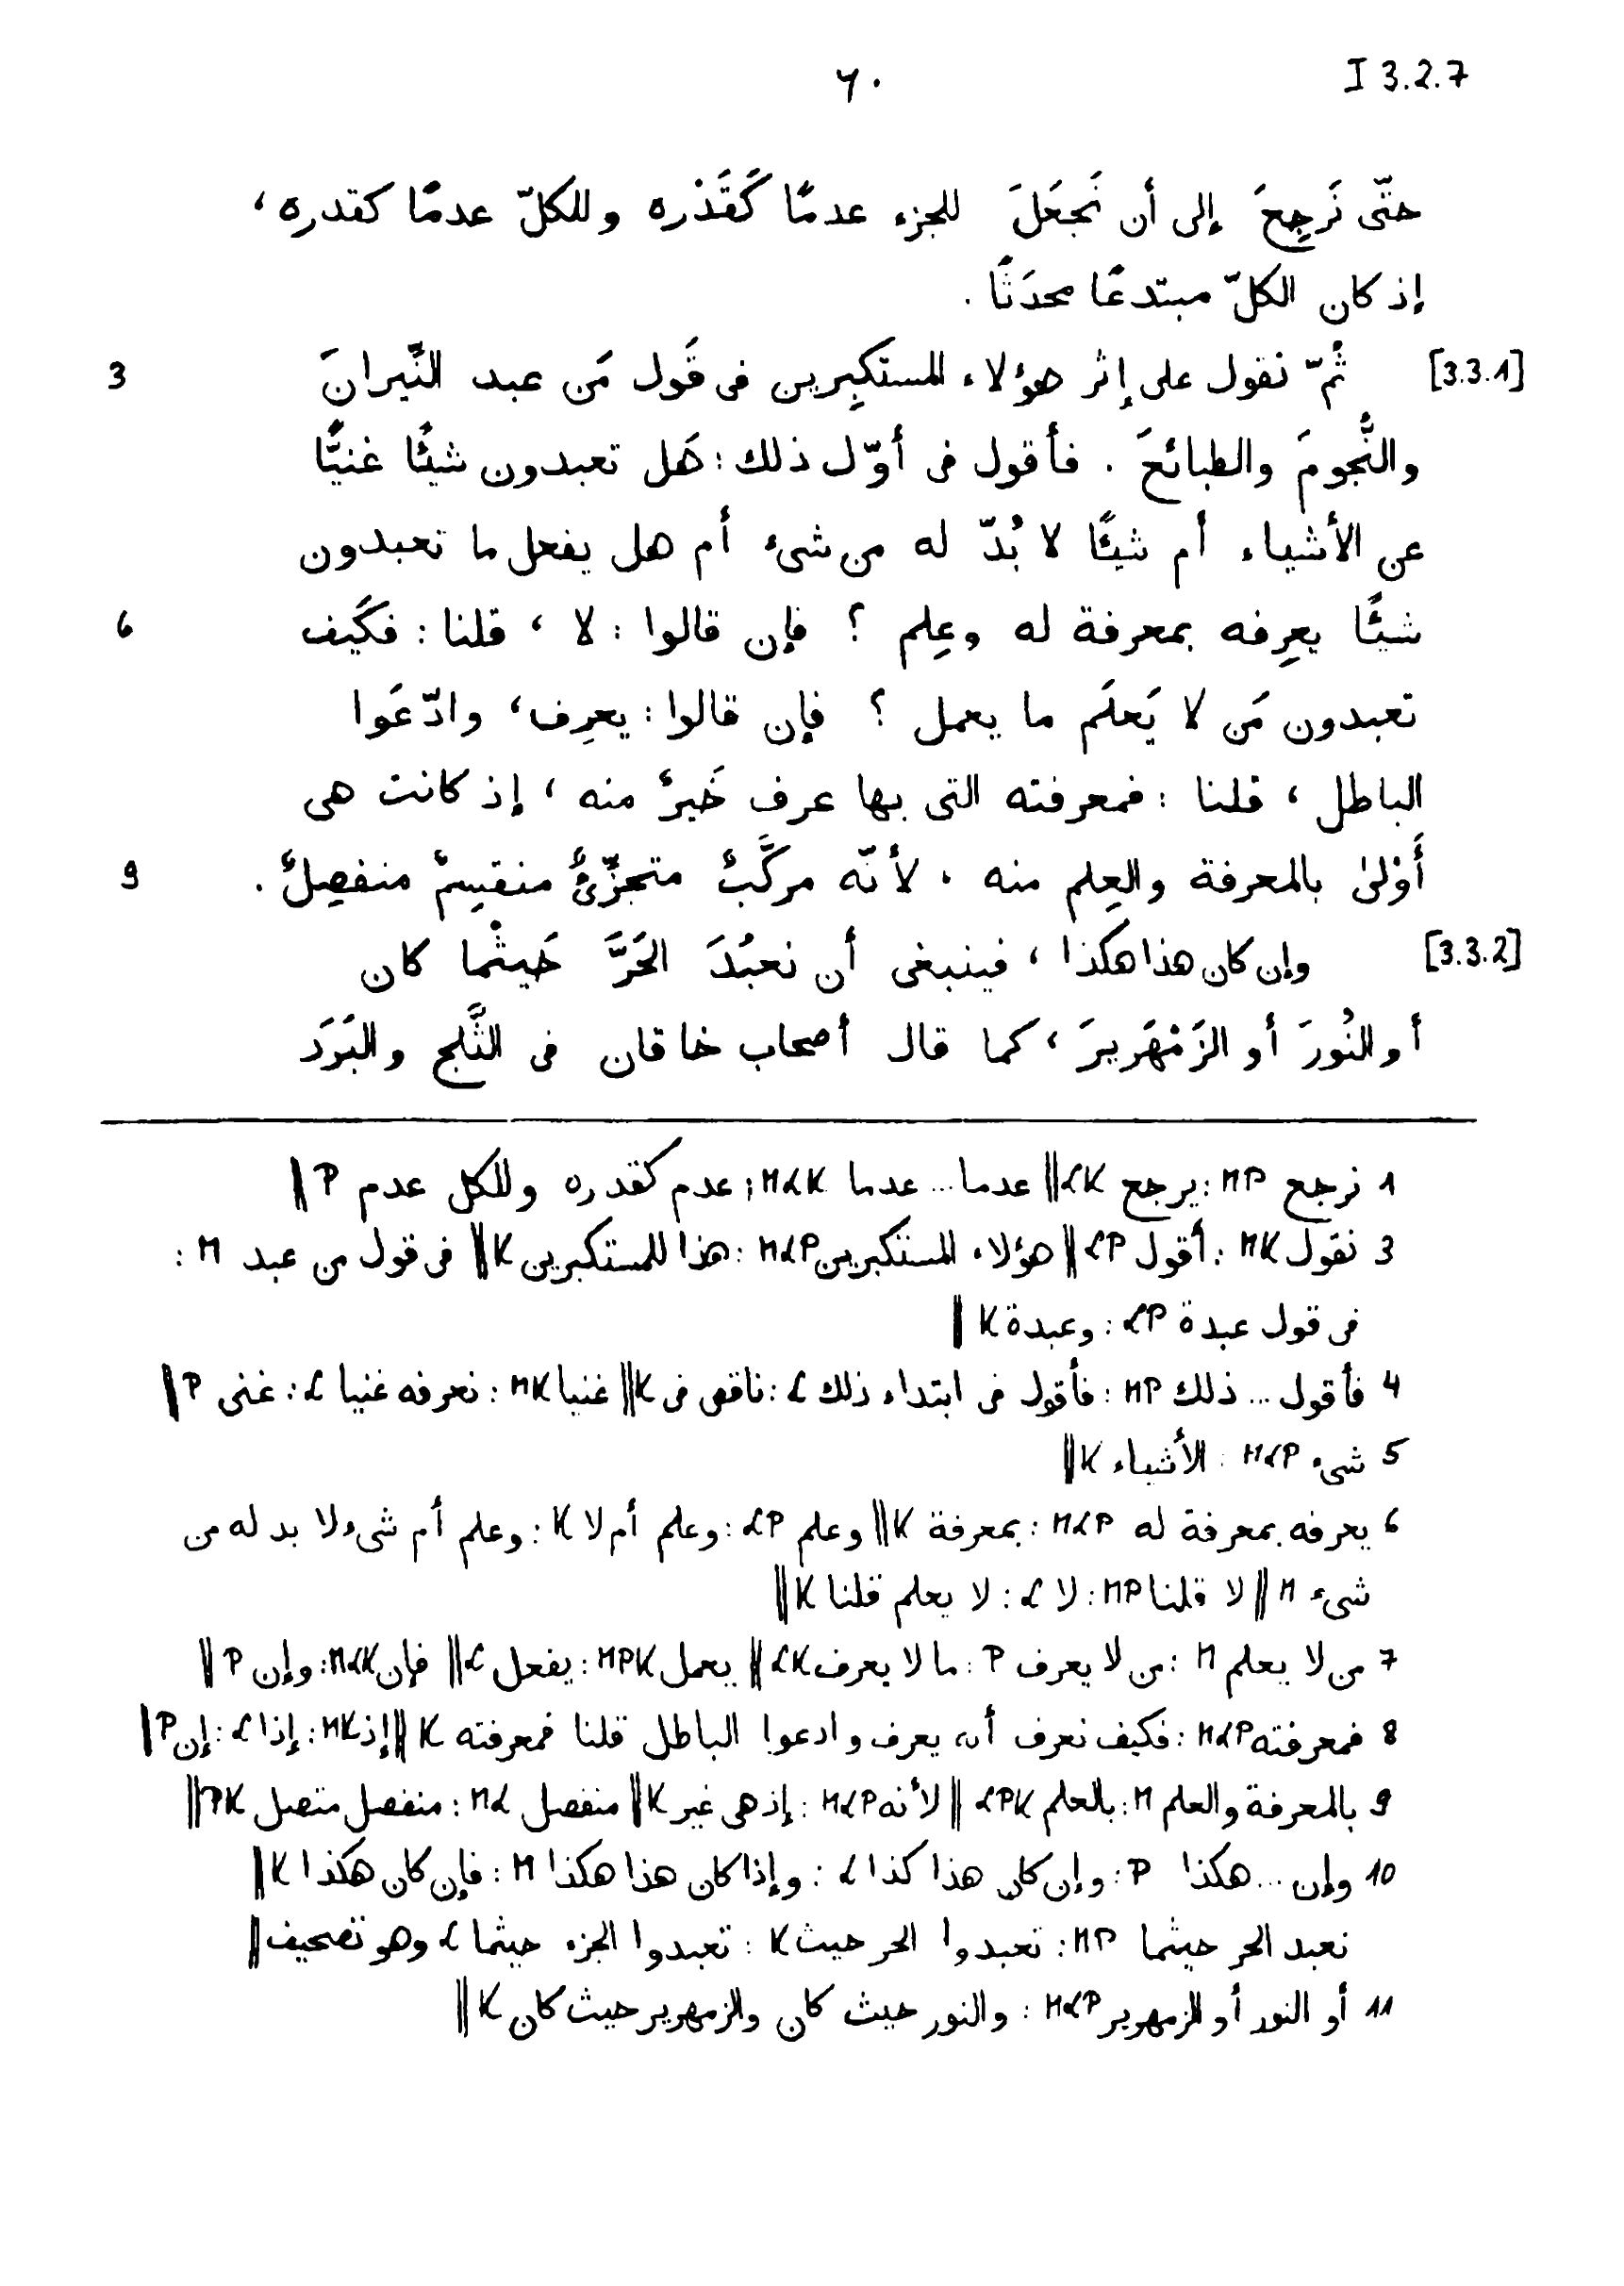 ٢٠ I 3.2.7
حتّى نَرجِعَ إلى أن نَجعَلَ للجزء عدمًا كَقَدْره وللكلّ عدمًا كقدره،
إذ كان الكلّ مبتدعًا محدَثًا .
[3.3.1] ثُمّ نقول على إثر هؤلاء المستكبِرين فى قَول مَن عبد النِّيرانَ 3
والنُّجومَ والطبائعَ . فأقول فى أوّل ذلك : هَل تعبدون شيئًا غنيًّا
عن الأشياء أم شيئًا لا بُدّ له من شىء أم هل يفعل ما تعبدون
شيئًا يعرِفه بمعرفة له وعِلم ؟ فإن قالوا : لا ، قلنا : فكَيف 6
تعبدون مَن لا يَعلَم ما يعمل ؟ فإن قالوا : يعرِف ، وادّعَوا
الباطل ، قلنا : فمعرفته التى بها عرف خَيرٌ منه ، إذ كانت هى
أَوْلىٰ بالمعرفة والعِلم منه . لأنّه مركَّبٌ متجزّئٌ منقسِمٌ منفصِلٌ . 9
[3.3.2] وإن كان هذا هكذا ، فينبغى أن نعبُدَ الحَرَّ حَيثُما كان
أو النُورَ أو الزَمْهَريرَ ، كما قال أصحاب خاقان فى الثَّلج والبَرَد
1 نرجع MP : يرجع LK || عدما ... عدما MLK ; عدم كقدره وللكل عدم P ||
3 نقول MK : أقول LP || هؤلاء المستكبرين MLP : هذا للمستكبرين K || فى قول من عبد M :
فى قول عبدة LP : وعبدة K ||
4 فأقول ... ذلك MP : فأقول فى ابتداء ذلك L : ناقص فى K || غنيا MK : نعرفه غنيا L : غنى P ||
5 شىء MLP : الأشياء K ||
6 يعرفه بمعرفة له MLP : بمعرفة K || وعلم LP : وعلم أم لا K : وعلم أم شىء لا بد له من
شىء M || لا قلنا MP : لا L : لا يعلم قلنا K ||
7 من لا يعلم M : من لا يعرف P : ما لا يعرف LK || يعمل MPK : يفعل L || فإن MLK : وإن P ||
8 فمعرفته MLP : فكيف نعرف أنه يعرف وادعوا الباطل قلنا فمعرفته K || إذ MK : إذا L : إن P ||
9 بالمعرفة والعلم M : بالعلم LPK || لأنه MLP : إذ هى غير K || منفصل ML : منفصل متصل PK ||
10 وإن ... هكذا P : وإن كان هذا كذا L : وإذا كان هذا هكذا M : فإن كان هكذا K ||
نعبد الحر حيثما MP : تعبدوا الحر حيث K : تعبدوا الجزء حيثما L وهو تصحيف ||
11 أو النور أو الزمهرير MLP : والنور حيث كان والزمهرير حيث كان K ||